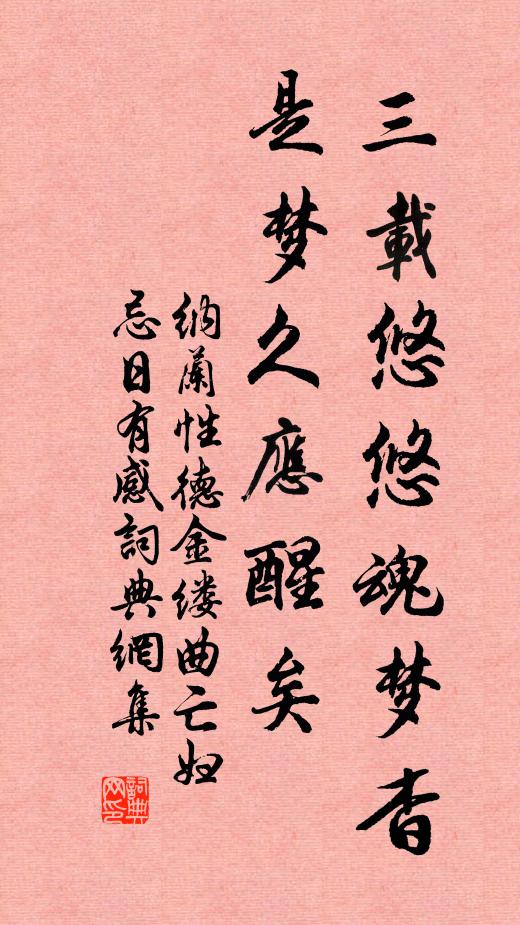 三載悠悠魂梦杳
是梦久應醒矣
纳蘭性德金缕曲亡妇
忌日有感詞典網集
詞典网印